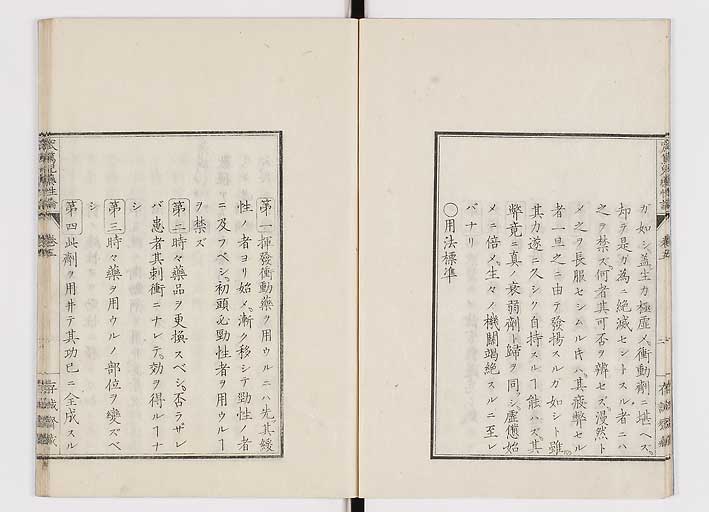 ガ如シ蓋生力極虚ノ衝動劑ニ堪ヘズ
却テ是カ為ニ絶滅セントスル者ニハ
之ヲ禁ズ何者其可否ヲ辨セズ漫然ト
メ之ヲ長服セシムル𪜈ハ其疲弊セル
者一旦之ニ由テ發揚スルガ如シト雖
其力遂ニ久シク自持スルヿ能ハズ其
弊竟ニ真ノ衰弱劑ト歸ヲ同シ虚憊始
メニ倍メ生々ノ機關竭絶スルニ至レ
バナリ
〇用法標準
第一揮發衝動藥ヲ用ウルニハ先其緩
性ノ者ヨリ始メ漸ク移シテ勁性ノ者
ニ及フベシ初頭必勁性者ヲ用ウルヿ
ヲ禁ズ
第二時々藥品ヲ更換スベシ否ラザレ
バ患者其刺衝ニナレテ効ヲ得ルヿナ
シ
第三時々藥ヲ用ウルノ部位ヲ變ズベ
シ
第四此劑ヲ用井テ其功已ニ全成スル